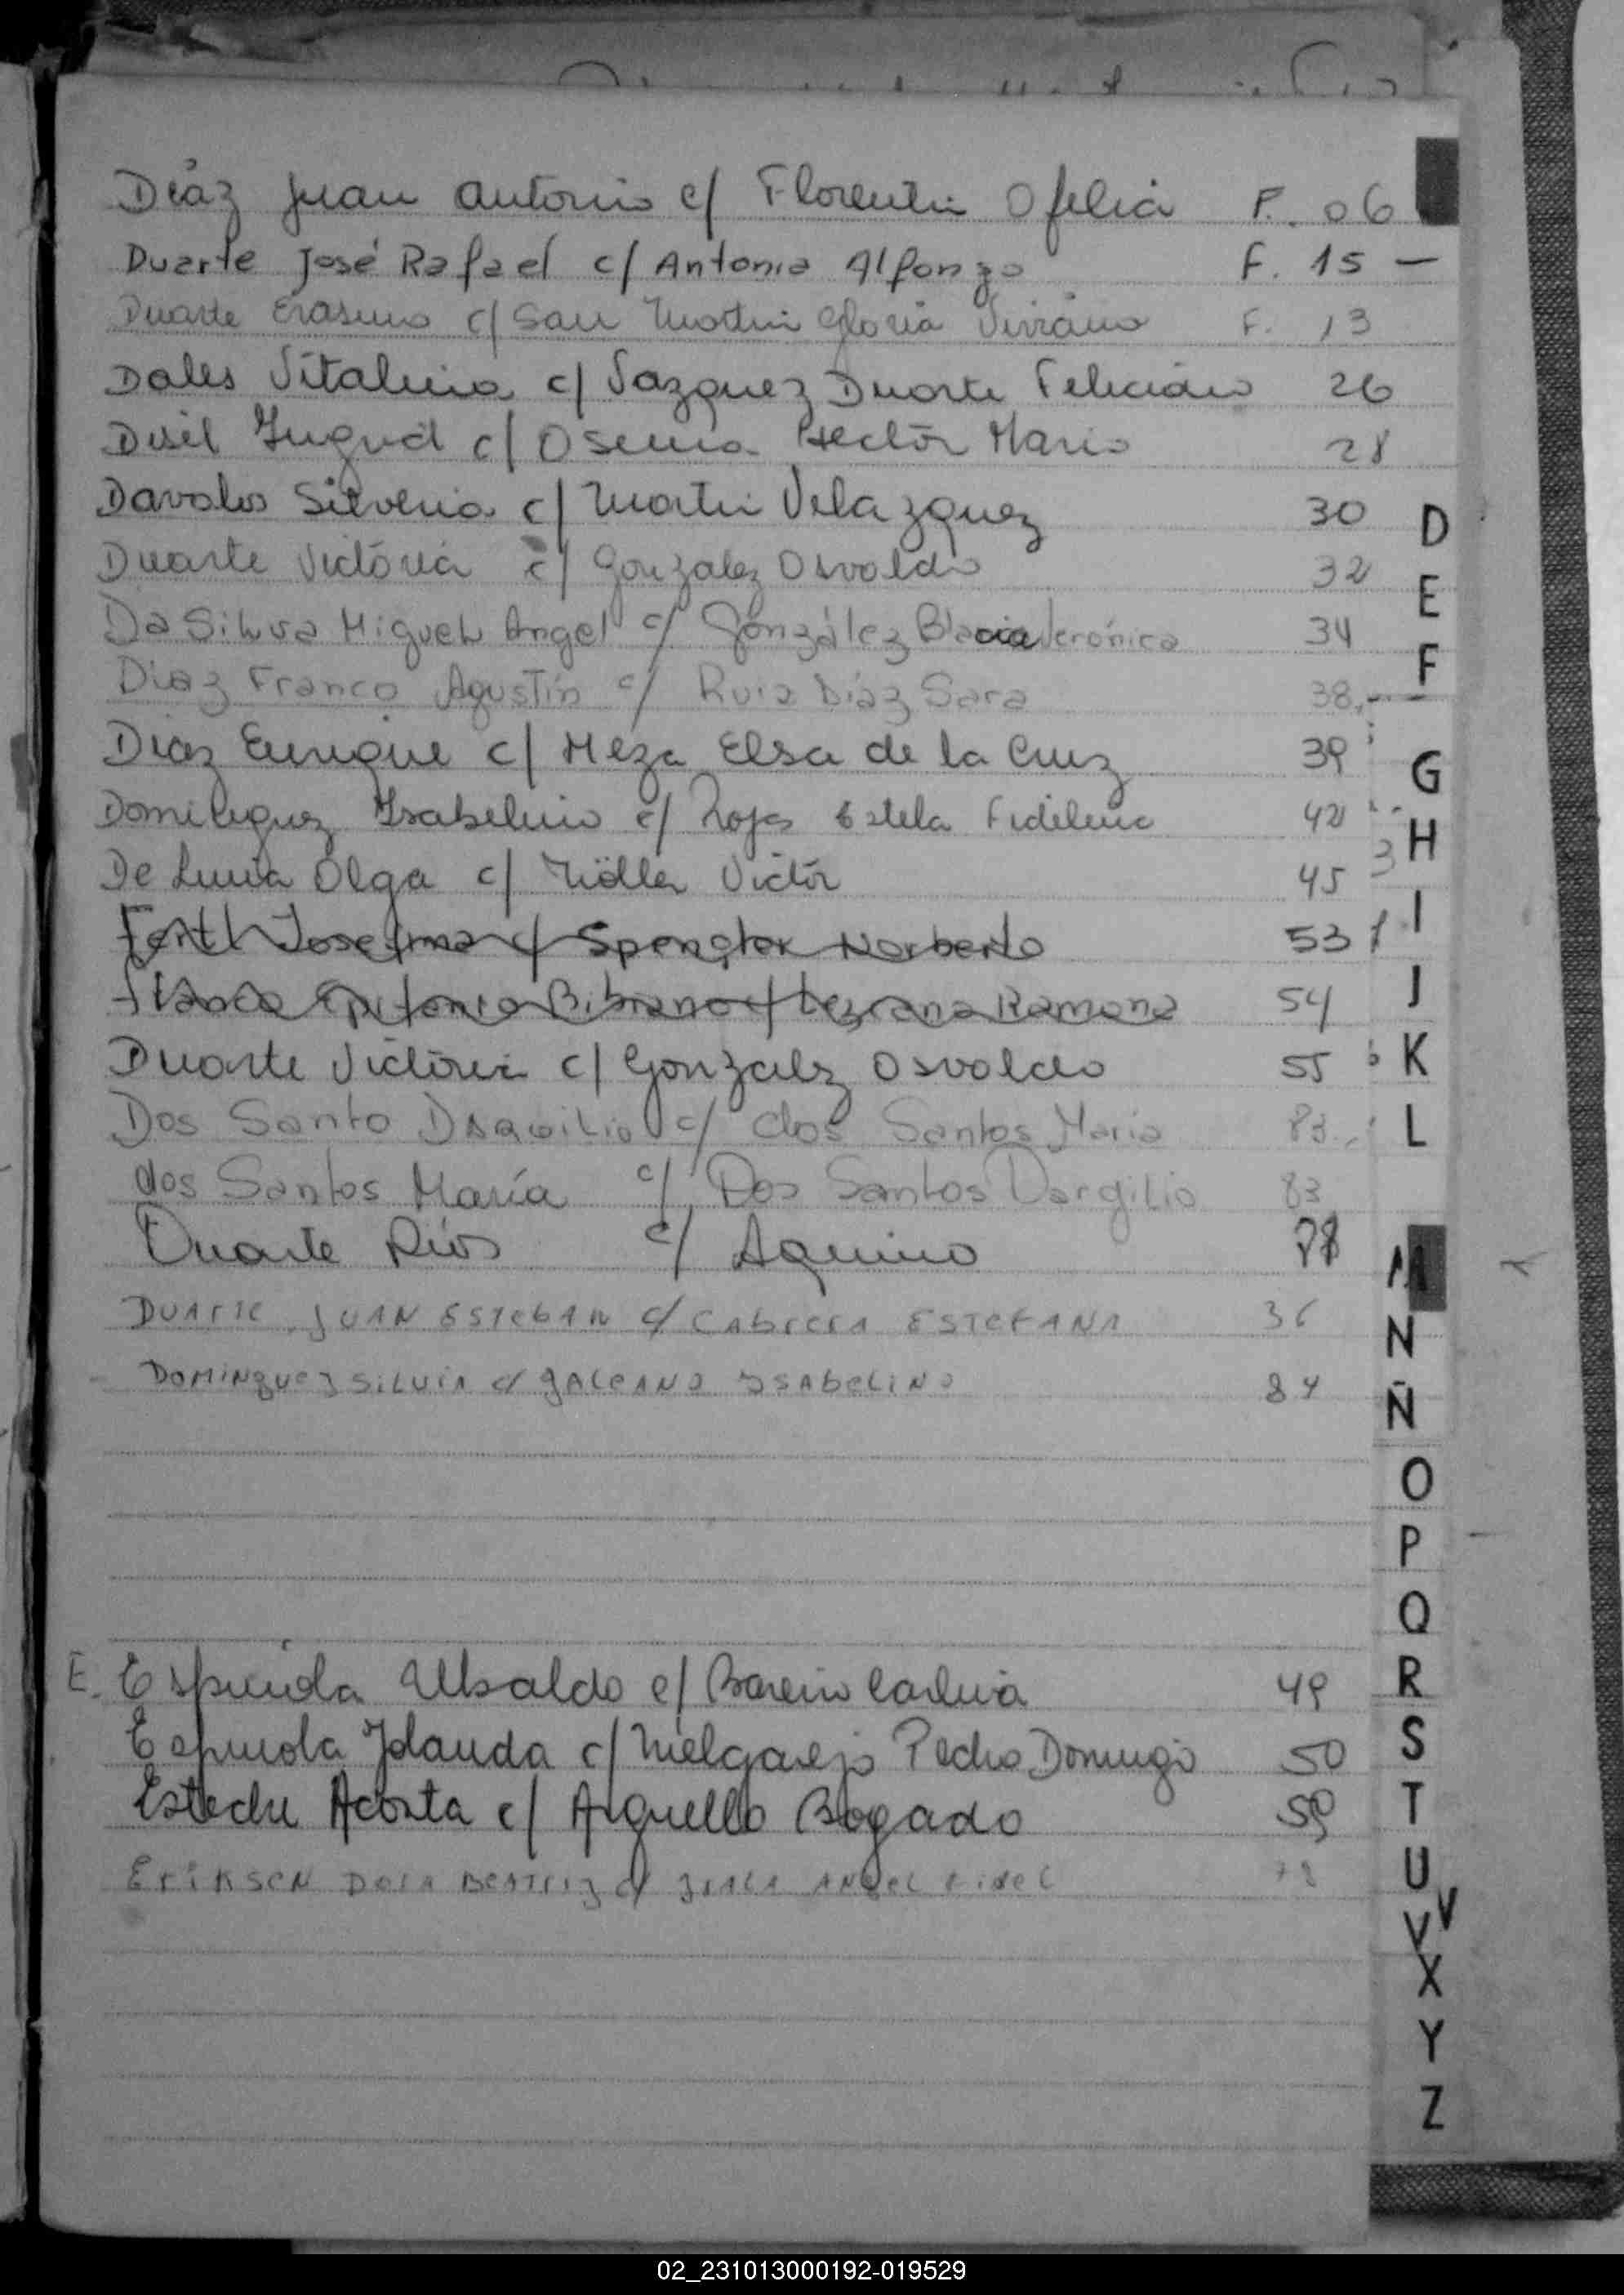 Díaz Juan Antonio c/ Florentin Ofelia F. 06
Duarte José Rafael c/ Antonia Alfonzo F. 15 —
Duarte Erasmo c/ San Martin Gloria Viviana F. 13
Dales Vitalina c/ Vazquez Duarte Feliciano 26
Disel Ingrid c/ Osema Hector Mario 28
Davalos Silveria c/ Martin Velazquez 30
Duarte Victoria c/ Gonzalez Osvaldo 32
Da Silva Miguel Angel c/ González Blacia Verónica 34
Diaz Franco Agustín c/ Ruiz Díaz Sara 38,-
Diaz Enrique c/ Meza Elsa de la Cruz 39
Dominguez Ysabelino c/ Rojas Estela Fidelina 42
De Luna Olga c/ Möller Victor 45
Fertl Josefina c/ Spengler Norberto 53
Franco Epifanio Bibiano c/ Lezcano Ramona 54
Duarte Victoria c/ Gonzalz Osvaldo 55
Dos Santo c/ dos Santos Maria 83
dos Santos María c/ Dos Santos Dargilio 83
Duarte Ríos c/ Aquino 78
DUARTE JUAN ESTEBAN c/ CABRERA ESTEFANA 36
DOMINGUEZ SILVIA c/ GALEANO YSABELINO 84
E. Espinola Ubaldo c/ Bareiro 49
Espinola Yolanda c/ Melgarejo Pedro Domingo 50
Esteche Acosta c/ Arguello Bogado 59
ERIKSEN DORA BEATRIZ c/ ANGEL FIDEL 78
D
E
F
G
H
I
J
K
L
M
N
Ñ
O
P
Q
R
S
T
U
V V
X
Y
Z
02_231013000192-019529